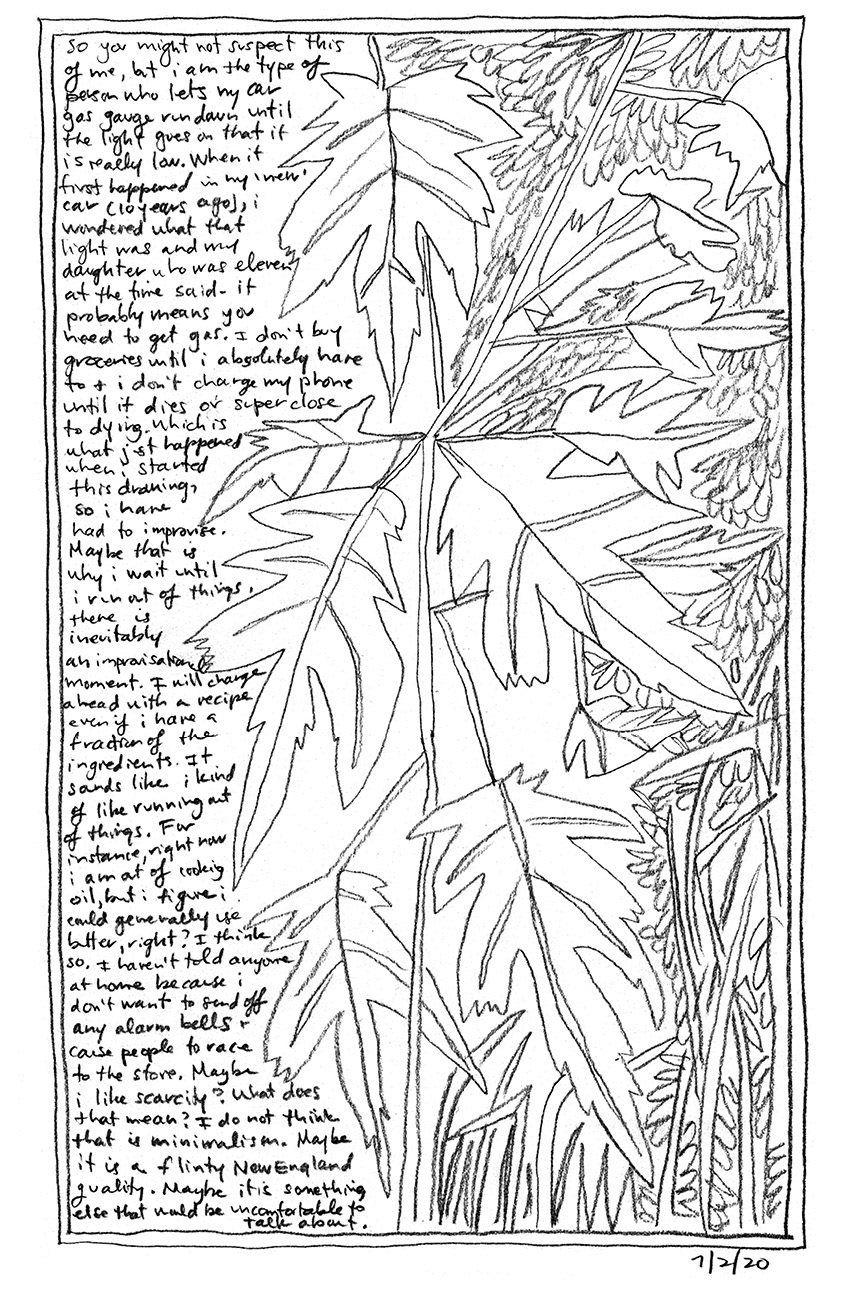 so you might not suspect this
of me, but i am the type of
person who lets my car
gas gauge run down until
the light goes on that it
is really low. When it
first happened in my 'new'
car (10 years ago), i
wondered what that
light was and my
daughter who was eleven
at the time said - it
probably means you
need to get gas. I don't buy
groceries until i absolutely have
to + i don't charge my phone
until it dies or super close
to dying. Which is
what just happened
when i started
this drawing,
so i have
had to improvise.
Maybe that is
why i wait until
i run out of things.
there is
inevitably
an improvisational
moment. I will charge
ahead with a recipe
even if i have a
fraction of the
ingredients. It
sounds like i kind
of like running out
of things. For
instance, right now
i am out of cooking
oil, but i figure i
could generally use
butter, right? I think
so. I haven't told anyone
at home because i
don't want to send off
any alarm bells +
cause people to race
to the store. Maybe
i like scarcity? What does
that mean? I do not think
that is minimalism. Maybe
it is a flinty New England
quality. Maybe it is something
else that would be uncomfortable to
talk about.
7/2/20